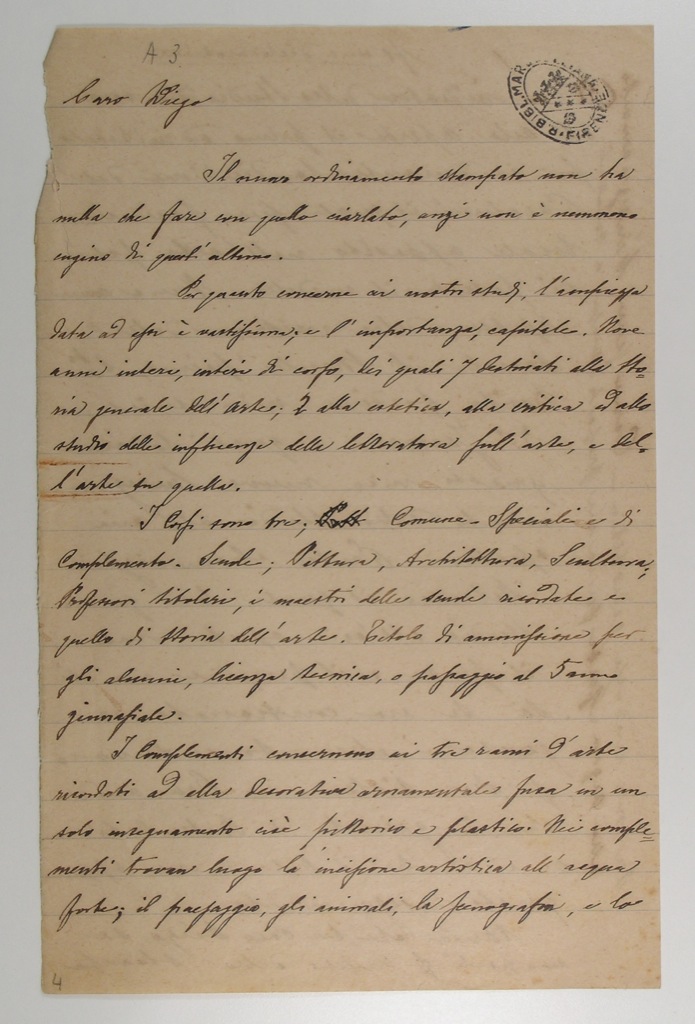 A 3.
R. BIBL. MARUCELLIANA FIRENZE
Caro Diego
Il nuovo ordinamento stampato non ha
nulla che fare con quello ciarlato, anzi non è nemmeno
cugino di quest'ultimo.
Per quanto concerne ai nostri studj, l'ampiezza
data ad essi è vastissima; e l'importanza, capitale. Nove
anni interi, interi di corso, dei quali 7 destinati alla sto=
ria generale dell'arte; 2 alla estetica, alla critica ed allo
studio delle influenze della letteratura sull'arte, e del=
l'arte su quella.
I Corsi sono tre; Comune - Speciali e di
Complemento. Scuole; Pittura, Architettura, Scultura;
Professori titolari, i maestri delle scuole ricordate e
quello di storia dell'arte. Titolo di ammissione per
gli alunni, licenza tecnica, o passaggio al 5 anno
ginnasiale.
I Complementi concernono ai tre rami d'arte
ricordati ad alla decorativa ornamentale fusa in un
solo insegnamento cioè pittorico e plastico. Nei comple=
menti trovan luogo la incisione artistica all'acqua
forte; il paesaggio, gli animali, la scenografia, e lo
4